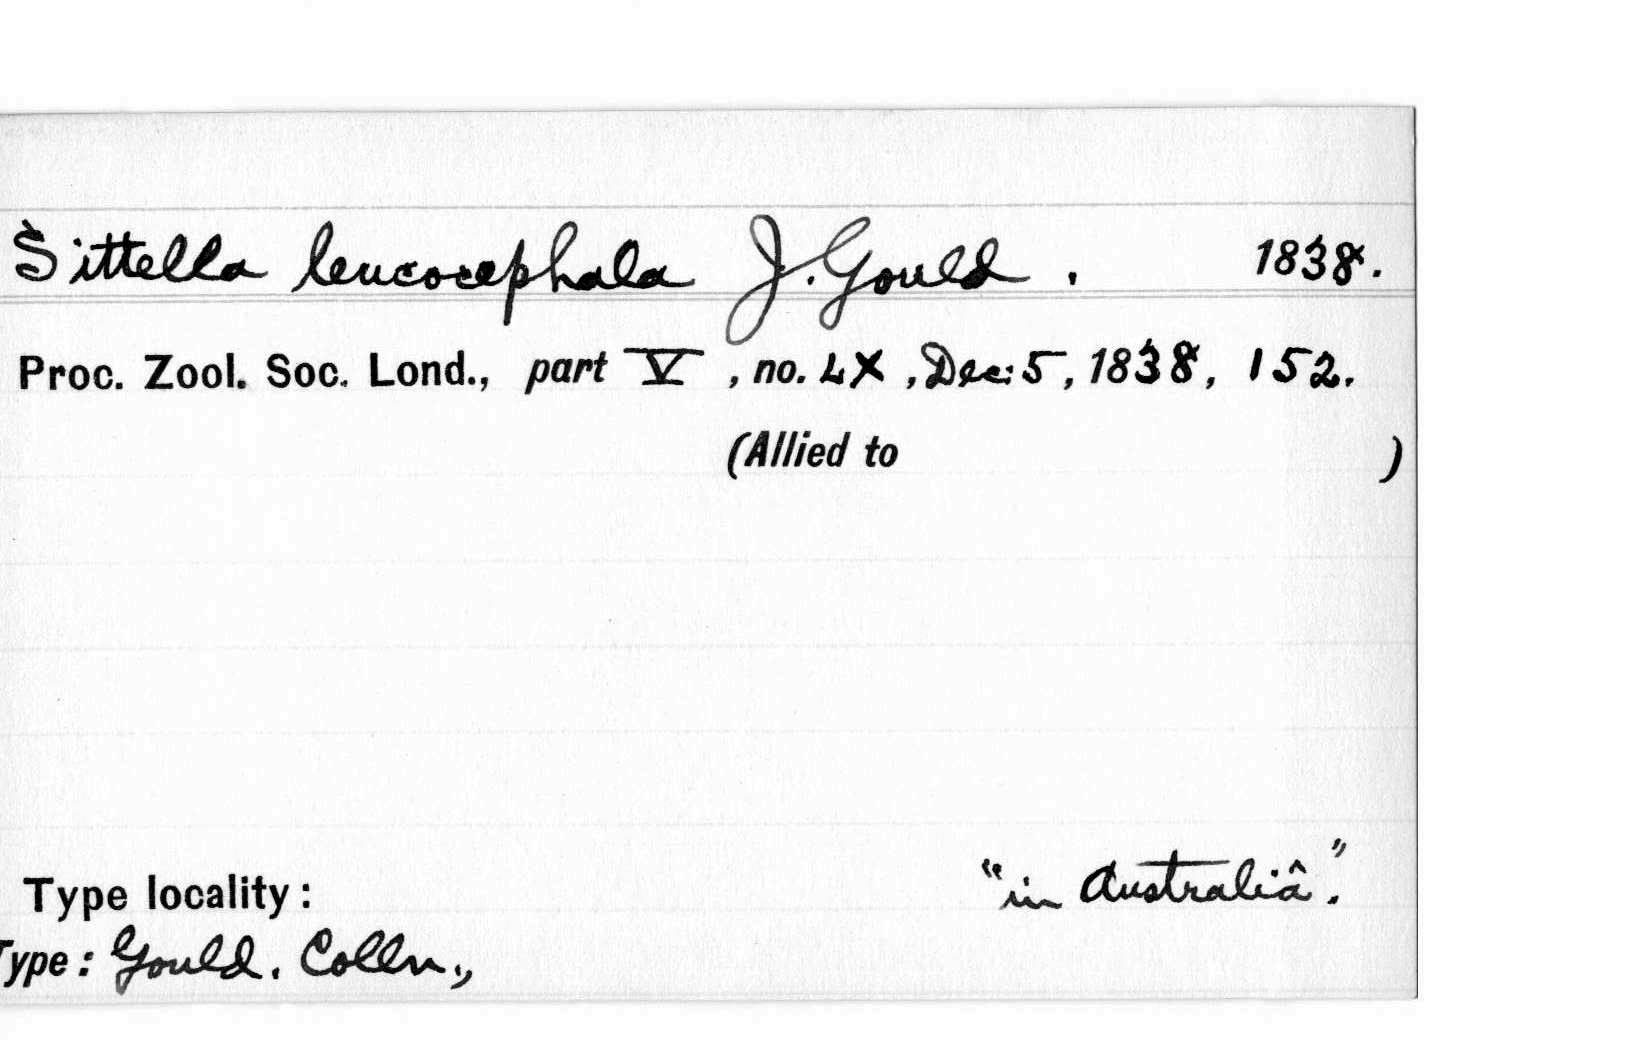 Sittella leucocephala J. Gould . 1838.
Proc. Zool. Soc. Lond., part V , no. LX , Dec: 5, 1838, 152.
(Allied to )
Type locality: "in Australiâ."
Type: Gould. Colln.,